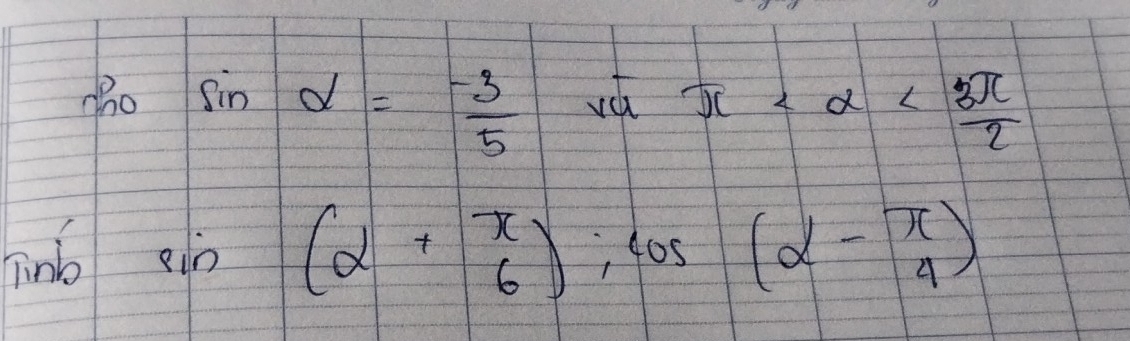 cho sin α = -3/5 và π < α < 3π/2
Tính sin (α + π/6) ; cos (α - π/4)